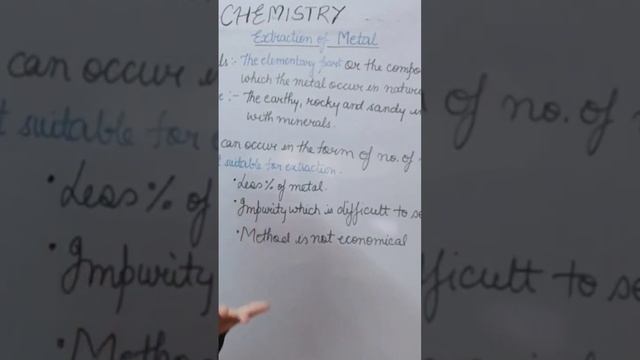 CHEMISTRY
Extraction of Metal
The elementary part or the compo
which the metal occur in natur
The earthy, rocky and sandy
with minerals.
can occur in the form of no. of
suitable for extraction.
• Less % of metal.
• Impurity which is difficult to se
• Method is not economical